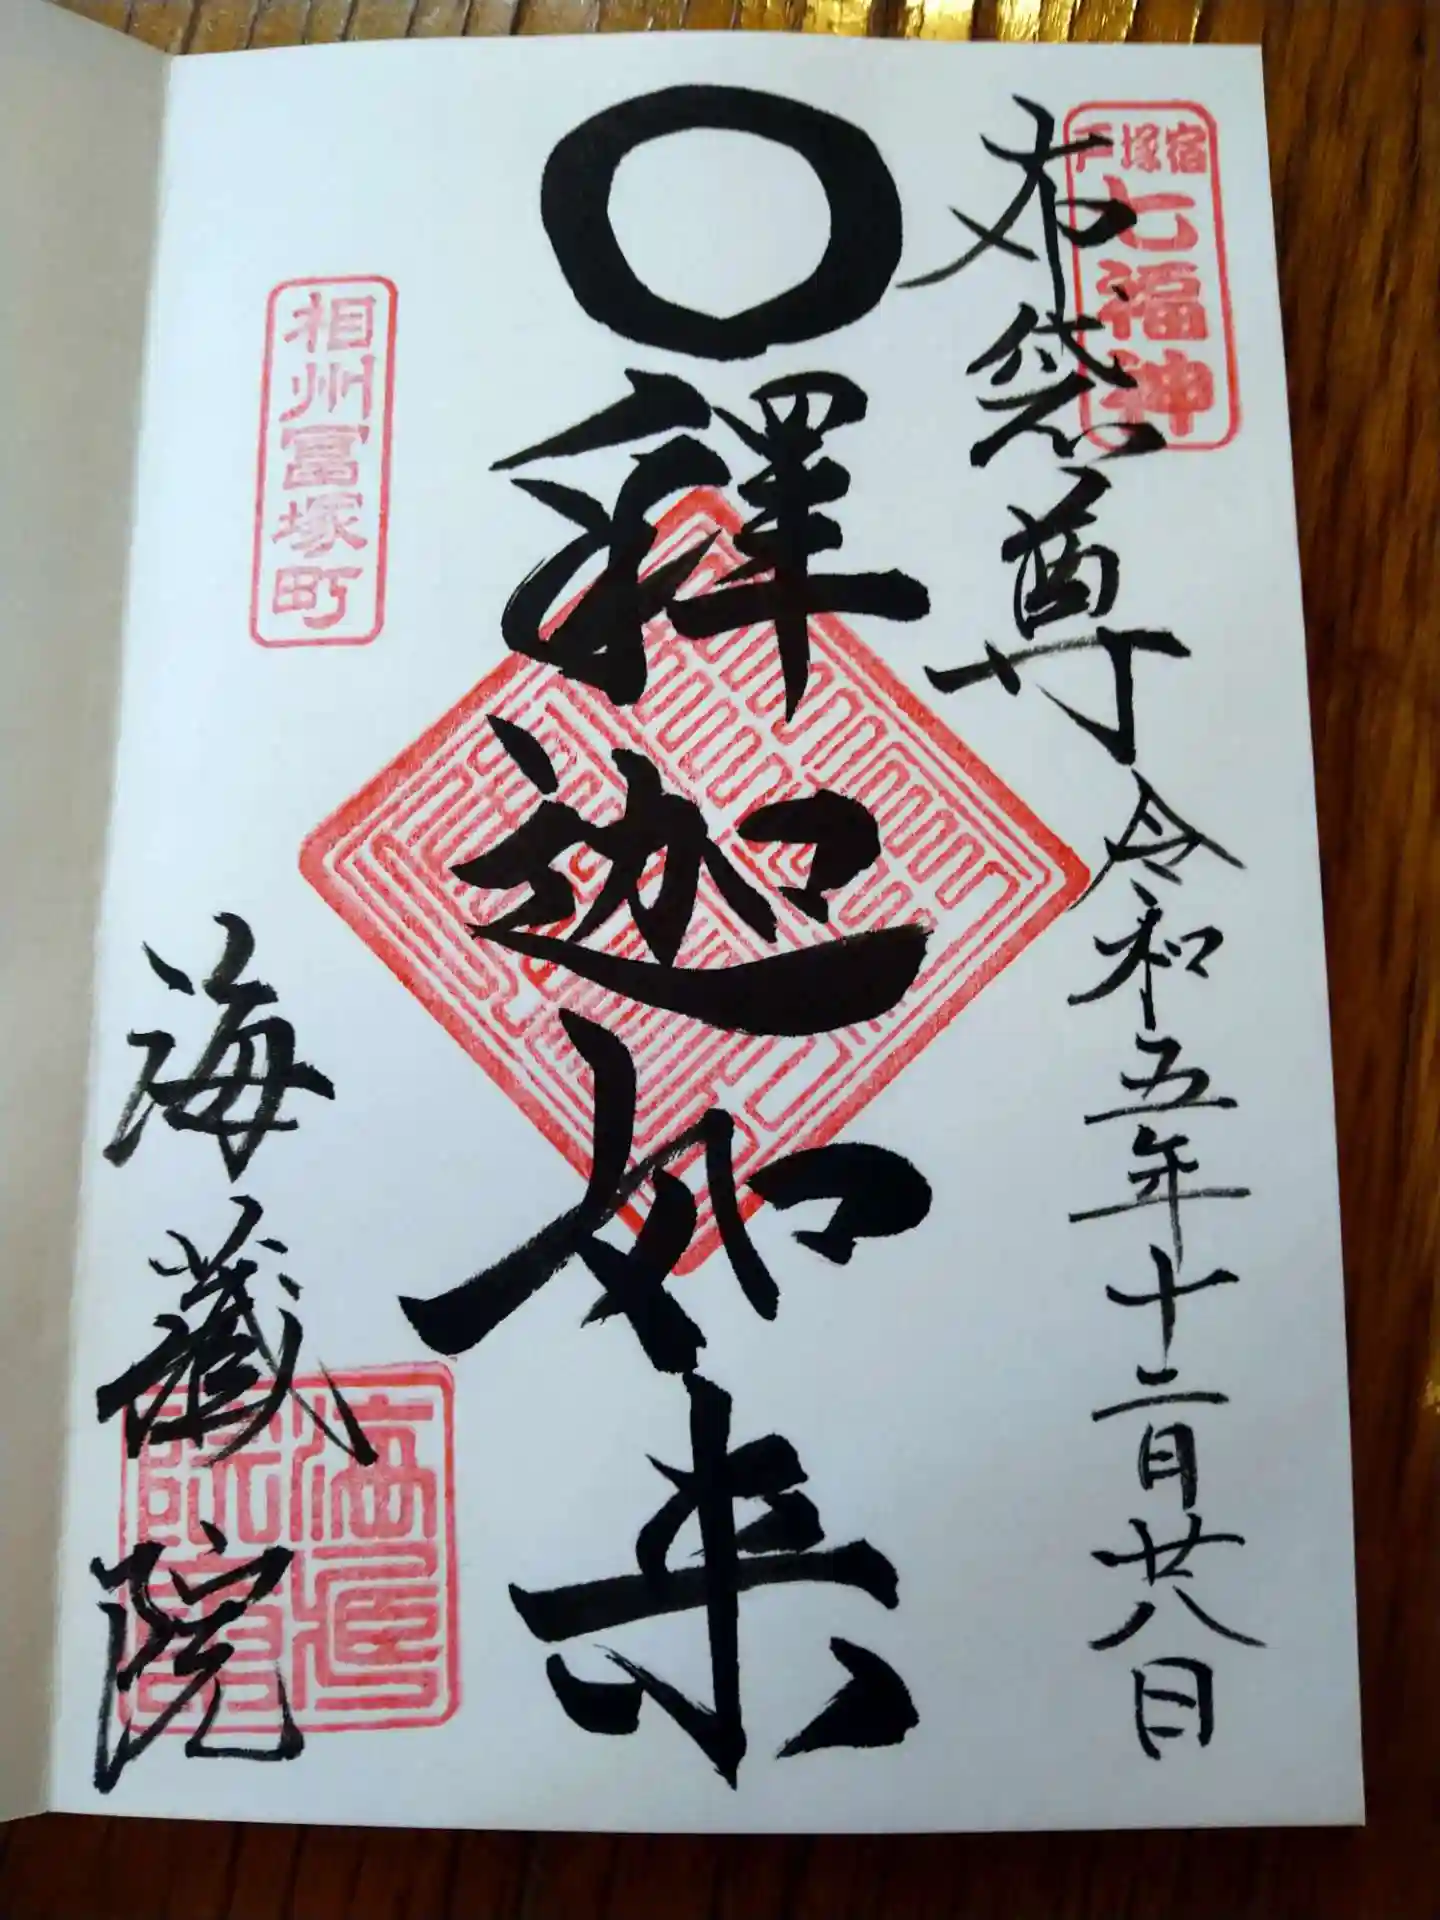 戸塚宿
七福神
布袋尊
令和五年十二月廿八日
〇釋迦如来
相州冨塚町
海藏院